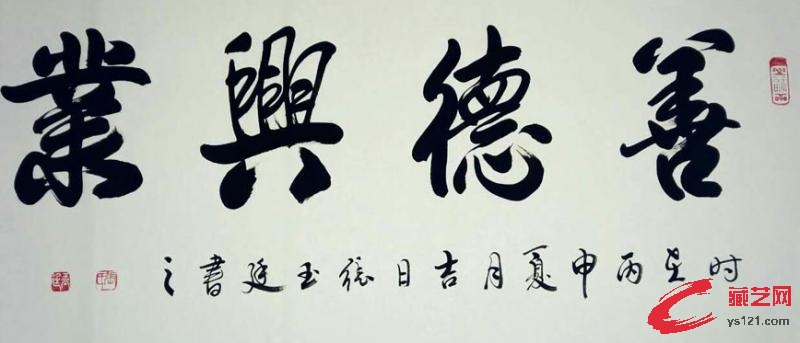 善德興業
时在丙申夏月吉日張玉廷書之
藏艺网
ys121.com